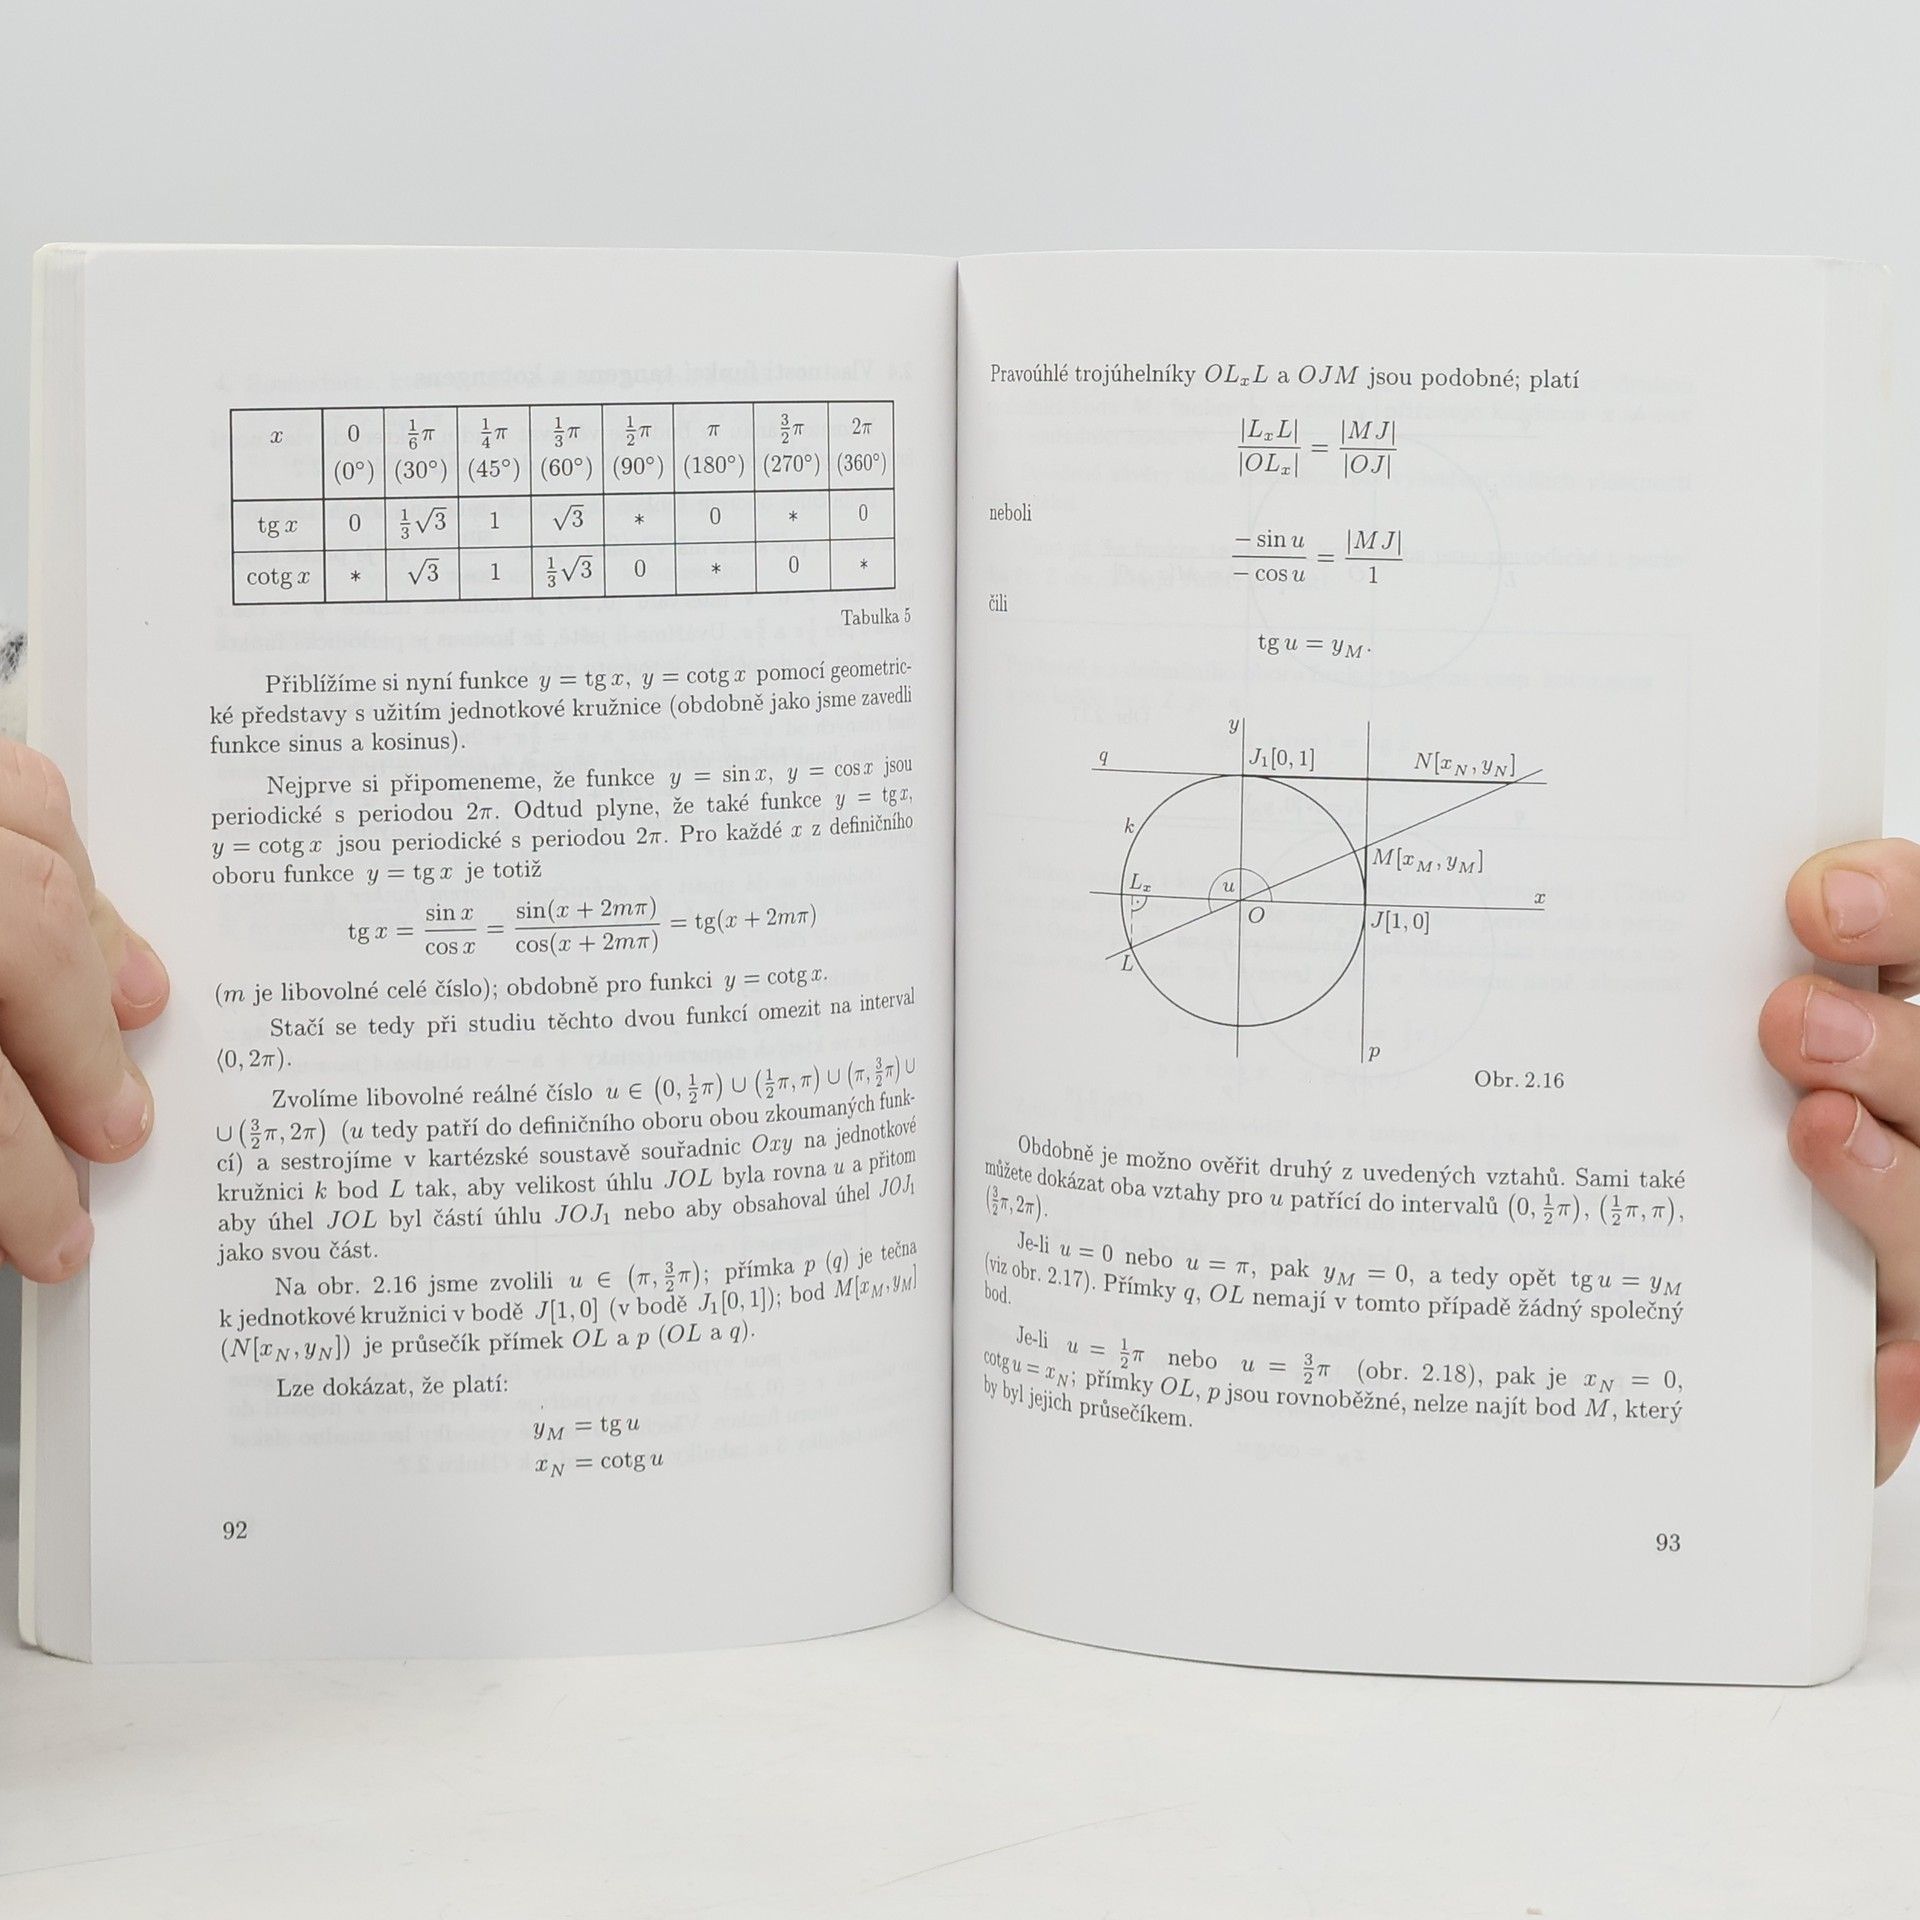 x 0 1/6π 1/4π 1/3π 1/2π π 3/2π 2π
(0°) (30°) (45°) (60°) (90°) (180°) (270°) (360°)
tg x 0 1/3√3 1 √3 * 0 * 0
cotg x * √3 1 1/3√3 0 * 0 *
Tabulka 5
Přiblížíme si nyní funkce y = tg x, y = cotg x pomocí geometric-
ké představy s užitím jednotkové kružnice (obdobně jako jsme zavedli
funkce sinus a kosinus).
Nejprve si připomeneme, že funkce y = sin x, y = cos x jsou
periodické s periodou 2π. Odtud plyne, že také funkce y = tg x,
y = cotg x jsou periodické s periodou 2π. Pro každé x z definičního
oboru funkce y = tg x je totiž
tg x = sin x / cos x = sin(x + 2mπ) / cos(x + 2mπ) = tg(x + 2mπ)
(m je libovolné celé číslo); obdobně pro funkci y = cotg x.
Stačí se tedy při studiu těchto dvou funkcí omezit na interval
⟨0, 2π).
Zvolíme libovolné reálné číslo u ∈ (0, 1/2π) ∪ (1/2π, π) ∪ (π, 3/2π) ∪
∪ (3/2π, 2π) (u tedy patří do definičního oboru obou zkoumaných funk-
cí) a sestrojíme v kartézské soustavě souřadnic Oxy na jednotkové
kružnici k bod L tak, aby velikost úhlu JOL byla rovna u a přitom
aby úhel JOL byl částí úhlu JOJ₁ nebo aby obsahoval úhel JOJ₁
jako svou část.
Na obr. 2.16 jsme zvolili u ∈ (π, 3/2π); přímka p (q) je tečna
k jednotkové kružnici v bodě J[1, 0] (v bodě J₁[0, 1]); bod M[x_M, y_M]
(N[x_N, y_N]) je průsečík přímek OL a p (OL a q).
Lze dokázat, že platí:
y_M = tg u
x_N = cotg u
92
Pravoúhlé trojúhelníky OLₓL a OJM jsou podobné; platí
|LₓL| / |OLₓ| = |MJ| / |OJ|
neboli
− sin u / − cos u = |MJ| / 1
čili
tg u = y_M.
y
q
J₁[0, 1]
N[x_N, y_N]
k
M[x_M, y_M]
Lₓ
u
x
O
J[1, 0]
L
p
Obr. 2.16
Obdobně je možno ověřit druhý z uvedených vztahů. Sami také
můžete dokázat oba vztahy pro u patřící do intervalů (0, 1/2π), (1/2π, π),
(3/2π, 2π).
Je-li u = 0 nebo u = π, pak y_M = 0, a tedy opět tg u = y_M
(viz obr. 2.17). Přímky q, OL nemají v tomto případě žádný společný
bod.
Je-li u = 1/2π nebo u = 3/2π (obr. 2.18), pak je x_N = 0,
cotg u = x_N; přímky OL, p jsou rovnoběžné, nelze najít bod M, který
by byl jejich průsečíkem.
93